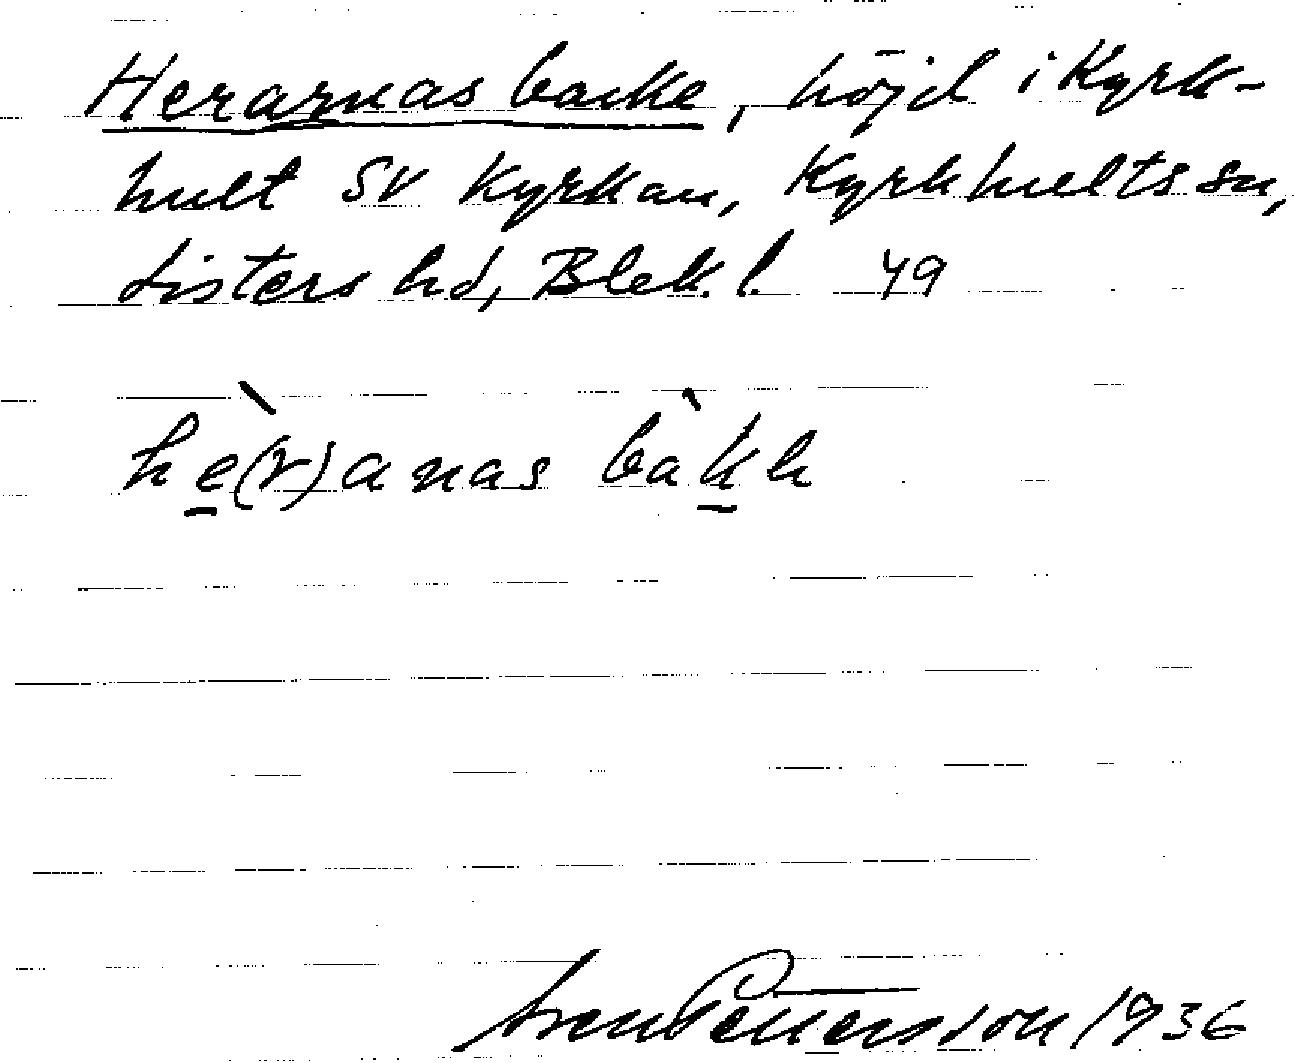 Herarnas backe, höjd i Kyrk-
hult SV Kyrkan, Kyrkhults sn,
Listers hd, Blek. l. 49
hè(r)anas bàkk
Sven Pettersson 1936